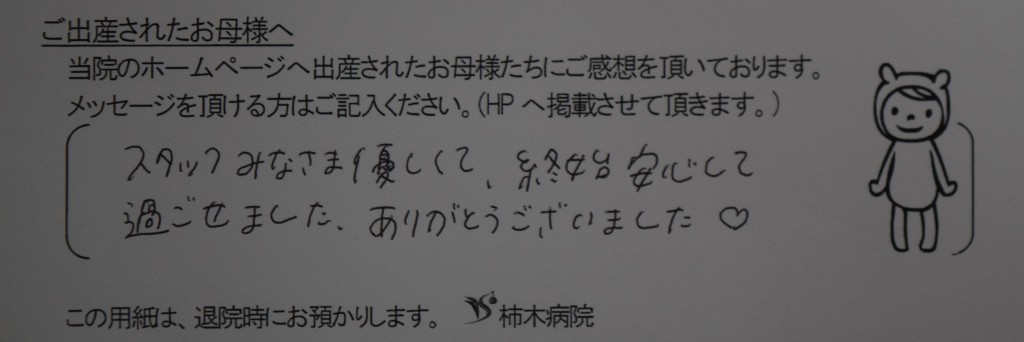 ご出産されたお母様へ
当院のホームページへ出産されたお母様たちにご感想を頂いております。
メッセージを頂ける方はご記入ください。(HPへ掲載させて頂きます。)
スタッフみなさま優しくて、終始安心して
過ごせました。ありがとうございました♡
この用紙は、退院時にお預かりします。 柿木病院